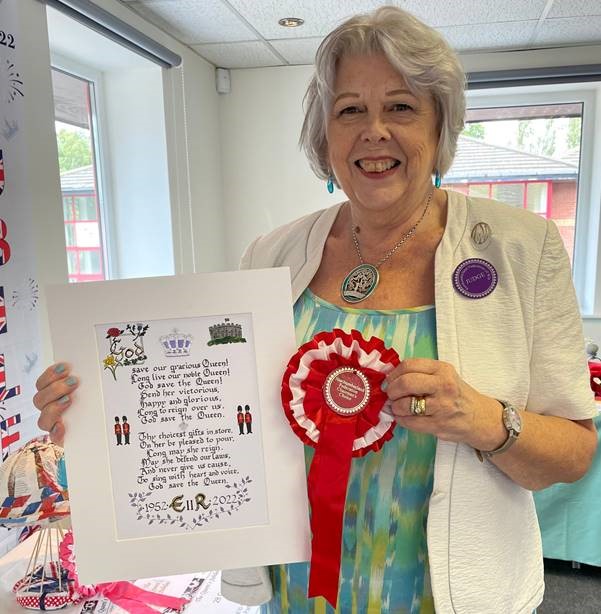 2022
God
save our gracious Queen!
Long live our noble Queen!
God save the Queen!
Send her victorious,
Happy and glorious,
Long to reign over us,
God save the Queen.
Thy choicest gifts in store,
On her be pleased to pour;
Long may she reign.
May she defend our laws,
And never give us cause,
To sing with heart and voice,
God save the Queen.
1952 EIIR 2022
Choice
JUDGE